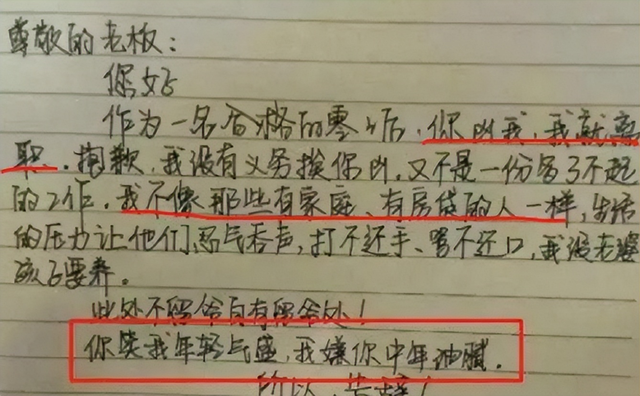 尊敬的老板：
你好
作为一名合格的零零后，你凶我，我就离
职，抱歉，我没有义务挨你凶，又不是一份多了不起
的工作，我不像那些有家庭、有房贷的人一样，生活
的压力让他们忍气吞声，打不还手、骂不还口，我没老婆
孩子要养。
此处不留爷自有留爷处！
你笑我年轻气盛，我嫌你中年油腻。
所以，告辞！